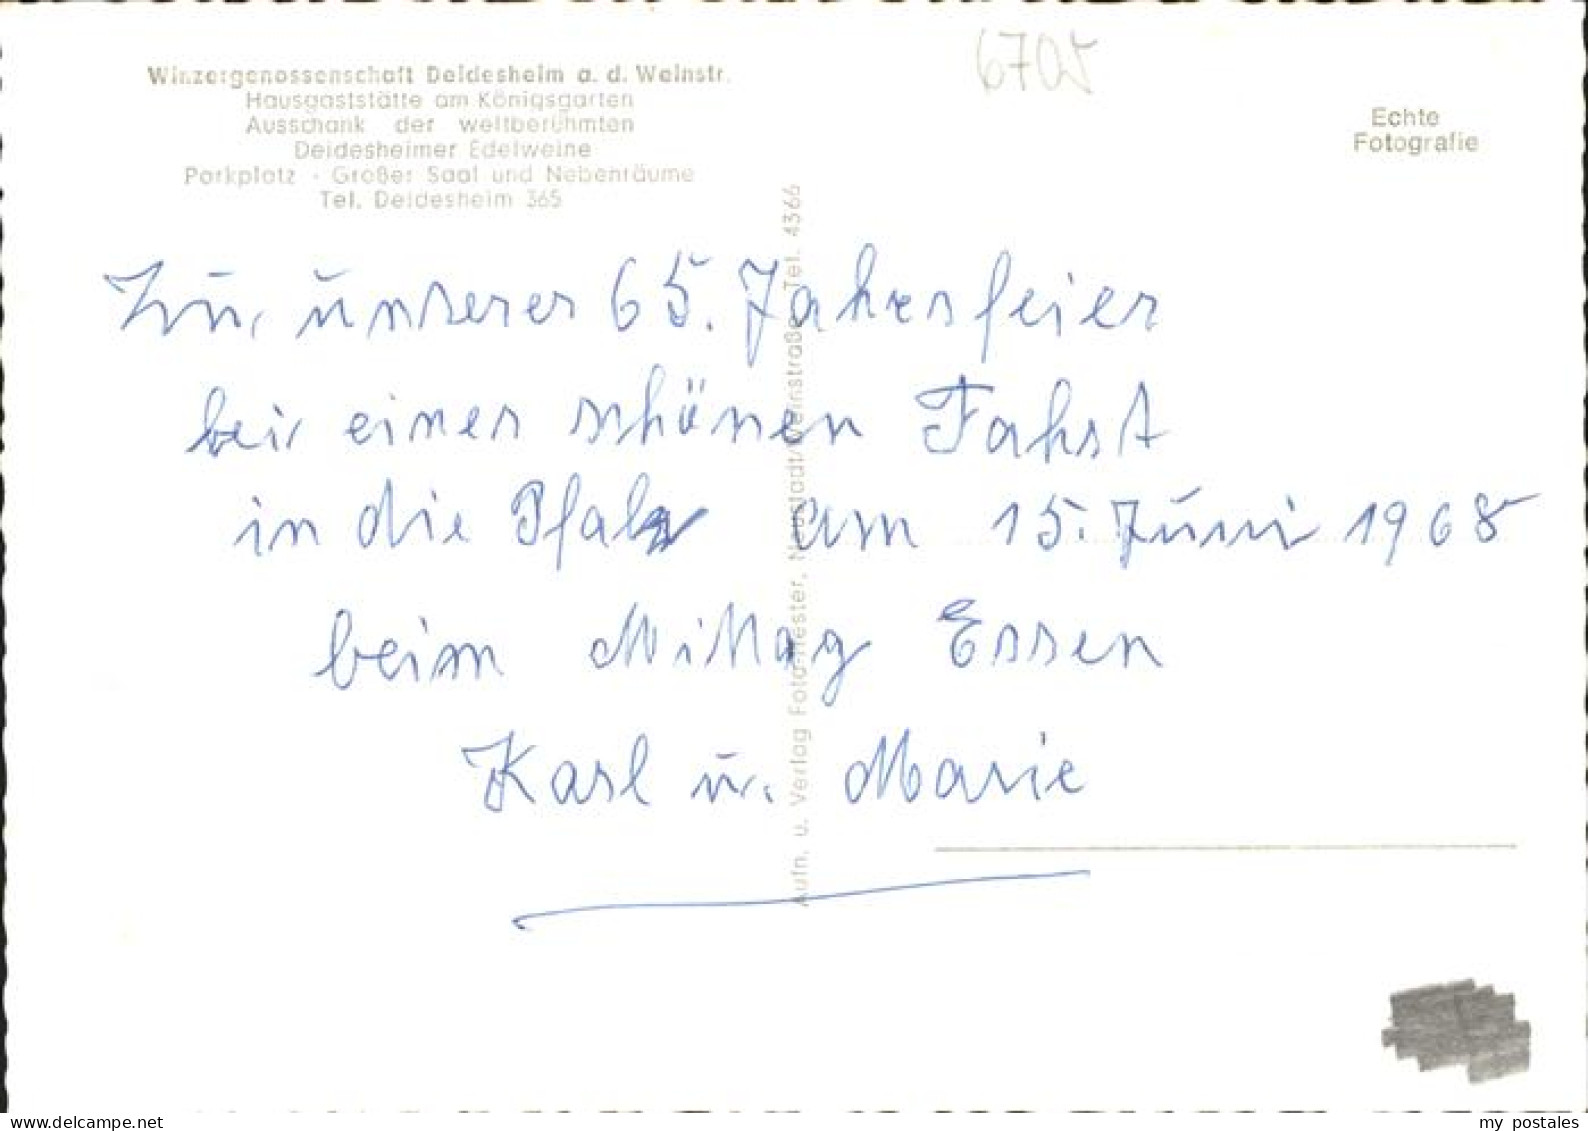 Winzergenossenschaft Deidesheim a. d. Weinstr.
Hausgaststätte am Königsgarten
Ausschank der weltberühmten
Deidesheimer Edelweine
Parkplatz · Großer Saal und Nebenräume
Tel. Deidesheim 365
Echte
Fotografie
Zu, unserer 65. Jahrsfeier
bei einer schönen Fahrt
in die Pfalz am 15. Juni 1968
beim Mittag Essen
Karl u. Marie
Aufn. u. Verlag Foto-Hester, Neustadt/Weinstraße, Tel. 4366
www.delcampe.net
my_postales